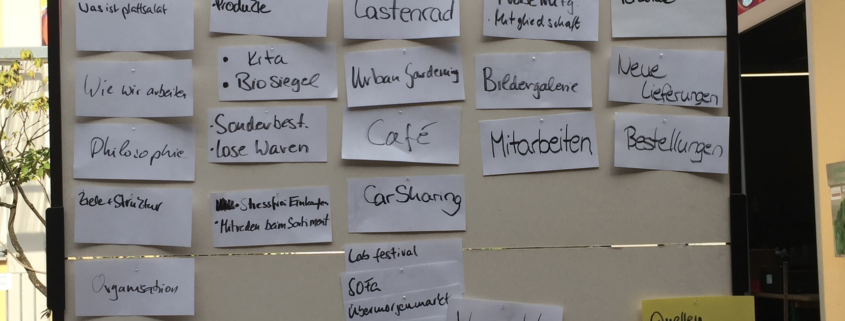 Was ist plattsalat
Wie wir arbeiten
Philosophie
Ziele + Struktur
Organisation
Produkte
• Kita
• Biosiegel
• Sonderbest.
• Lose Waren
• Stressfrei Einkaufen
• Mitreden beim Sortiment
Lastenrad
Urban Gardening
Café
CarSharing
Lab festival
SOFa
Übermorgenmarkt
• Mitgliedschaft
Bildergalerie
Mitarbeiten
Neue
Lieferungen
Bestellungen
Quellen